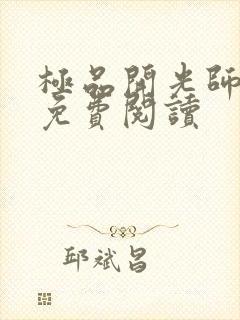 極品開光師
免費閱讀
邱斌昌